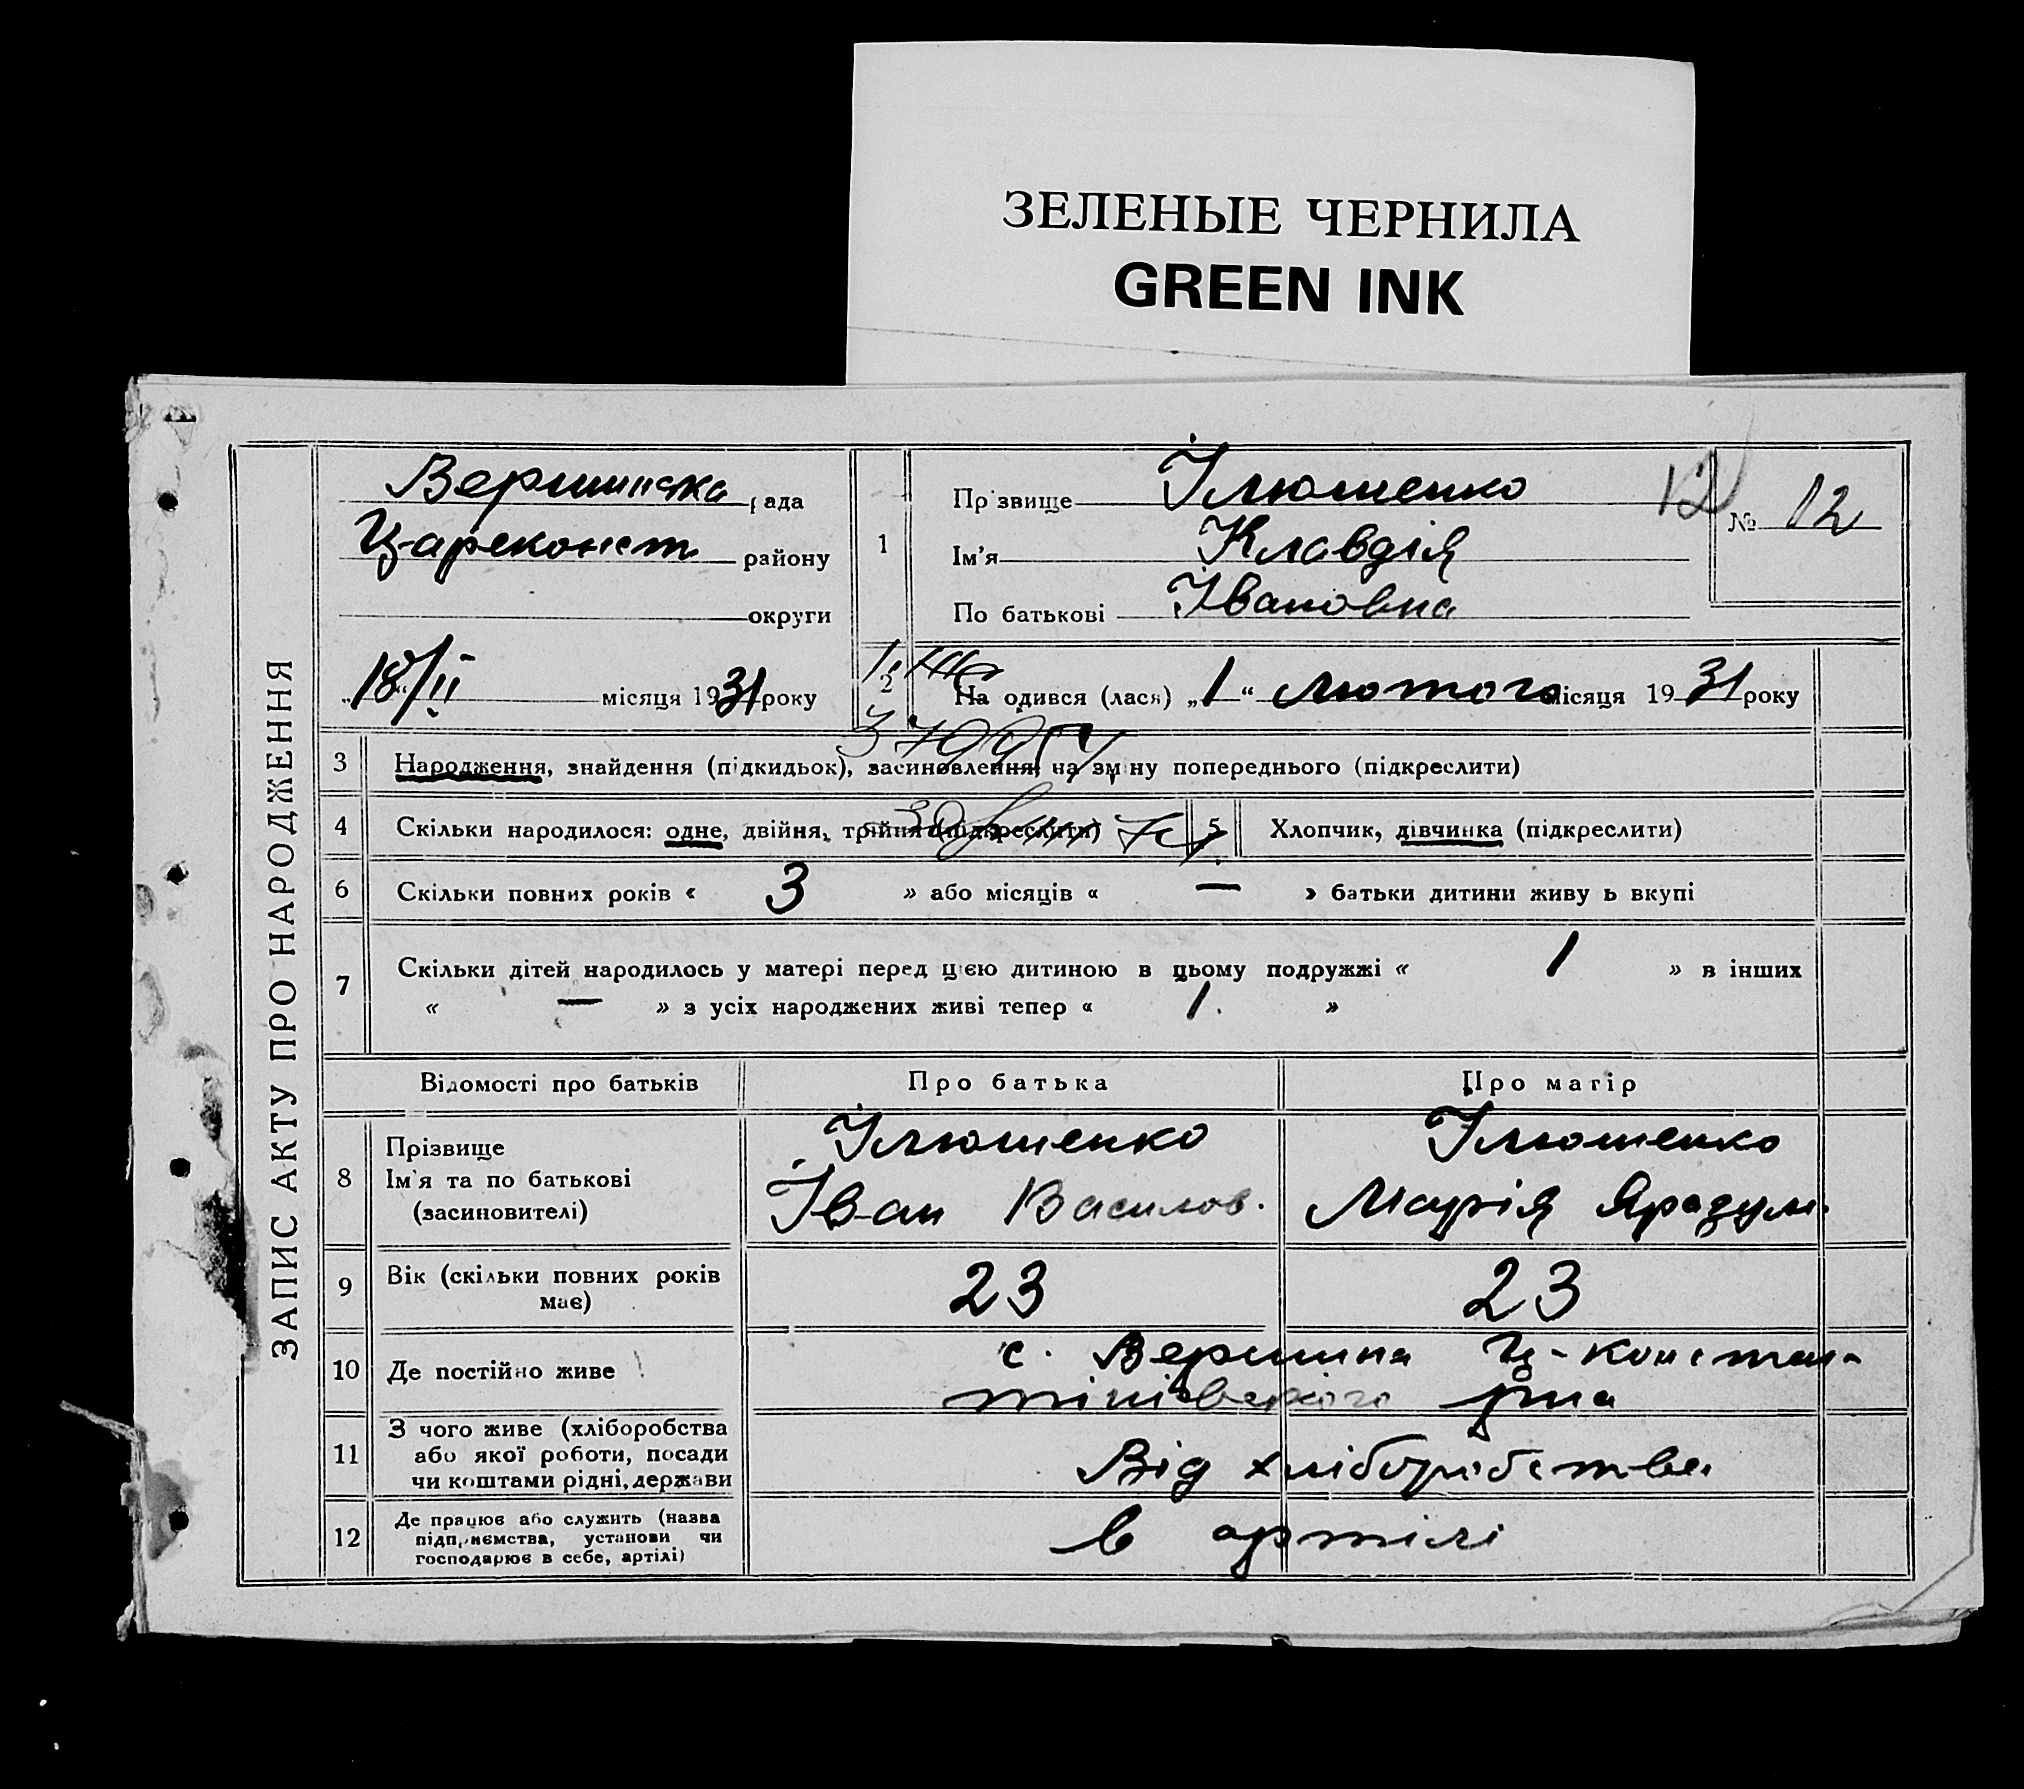 ЗЕЛЕНЫЕ ЧЕРНИЛА
GREEN INK
ЗАПИС АКТУ ПРО НАРОДЖЕННЯ
Вершинська рада
Цареконст району
округи
„18/II“ місяця 1931 року
1
Прізвище Ілюшенко
Ім'я Клавдія
По батькові Івановна
12
№ 12
2
На одився (лася) „1“ лютого місяця 1931 року
3 Народження, знайдення (підкидьок), засиновлення, на зміну попереднього (підкреслити)
4 Скільки народилося: одне, двійня, трійня (підкреслити)
5 Хлопчик, дівчинка (підкреслити)
6 Скільки повних років « 3 » або місяців « — » батьки дитини живу ь вкупі
7 Скільки дітей народилось у матері перед цією дитиною в цьому подружжі « 1 » в інших
« — » з усіх народжених живі тепер « 1. »
Відомості про батьків Про батька Про матір
8 Прізвище
Ім'я та по батькові
(засиновителі)
Ілюшенко
Іван Васильов.
Ілюшенко
Марія
9 Вік (скільки повних років
має)
23 23
10 Де постійно живе
с. Вершина Ц-констан-
тінівського рна
11 З чого живе (хліборобства
або якої роботи, посади
чи коштами рідні, держави
Від хліборобства
12 Де працює або служить (назва
підприємства, установи чи
господарює в себе, артілі)
в артілі